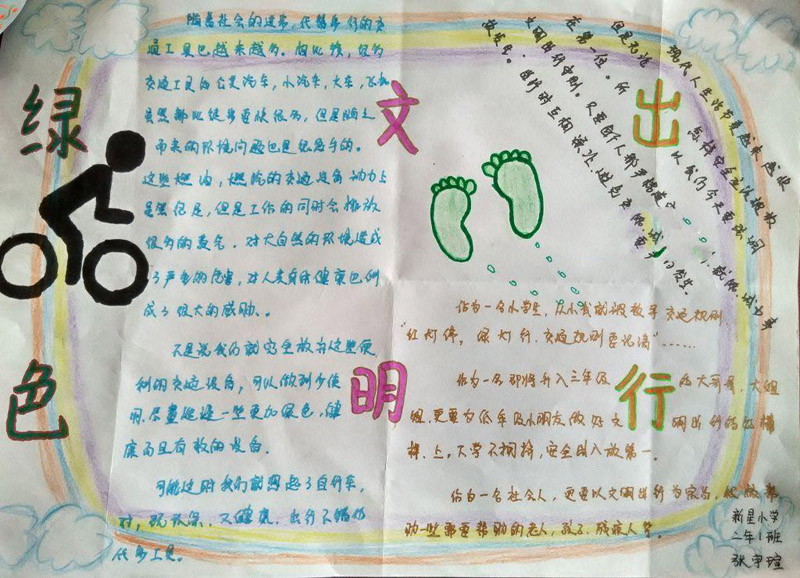 绿色
文明
出行
随着社会的进步,代替步行的交
通工具已越来越多。相比较,较为
交通工具的公共汽车,小汽车,火车,飞机
虽然都比徒步要快很多,但是随之
而来的环境问题也是很严重的。
这些燃油,燃气的交通设备动力上
虽然很足,但是工作的同时会排放
很多的废气。对大自然的环境造成
了严重的伤害,对人类身体健康也构
成了很大的威胁。
不是说我们就完全放弃这些便
利的交通设备,可以做到少使
用,尽量选择一些更加绿色,健
康而且有效的设备。
可能这时我们就想起了自行车,
对,既环保,又健康,出行不错的
代步工具。
现代人生活节奏越来越快
但是无论
怎样安全应该摆放
在第一位。所以我们今天要强调
文明出行
作为一名小学生,从小我就被教导交通规则,
“红灯停,绿灯行,交通规则要记清”……
作为一名即将升入三年级的大哥哥、大姐
姐,更要为低年级小朋友做好文明出行的好榜
样,上、下学不拥挤,安全出入放第一。
作为一名社会人,更要以文明出行为宗旨,做做帮
助一些需要帮助的老人,孩子,残疾人等。
新星小学
二年1班
张宇瑄